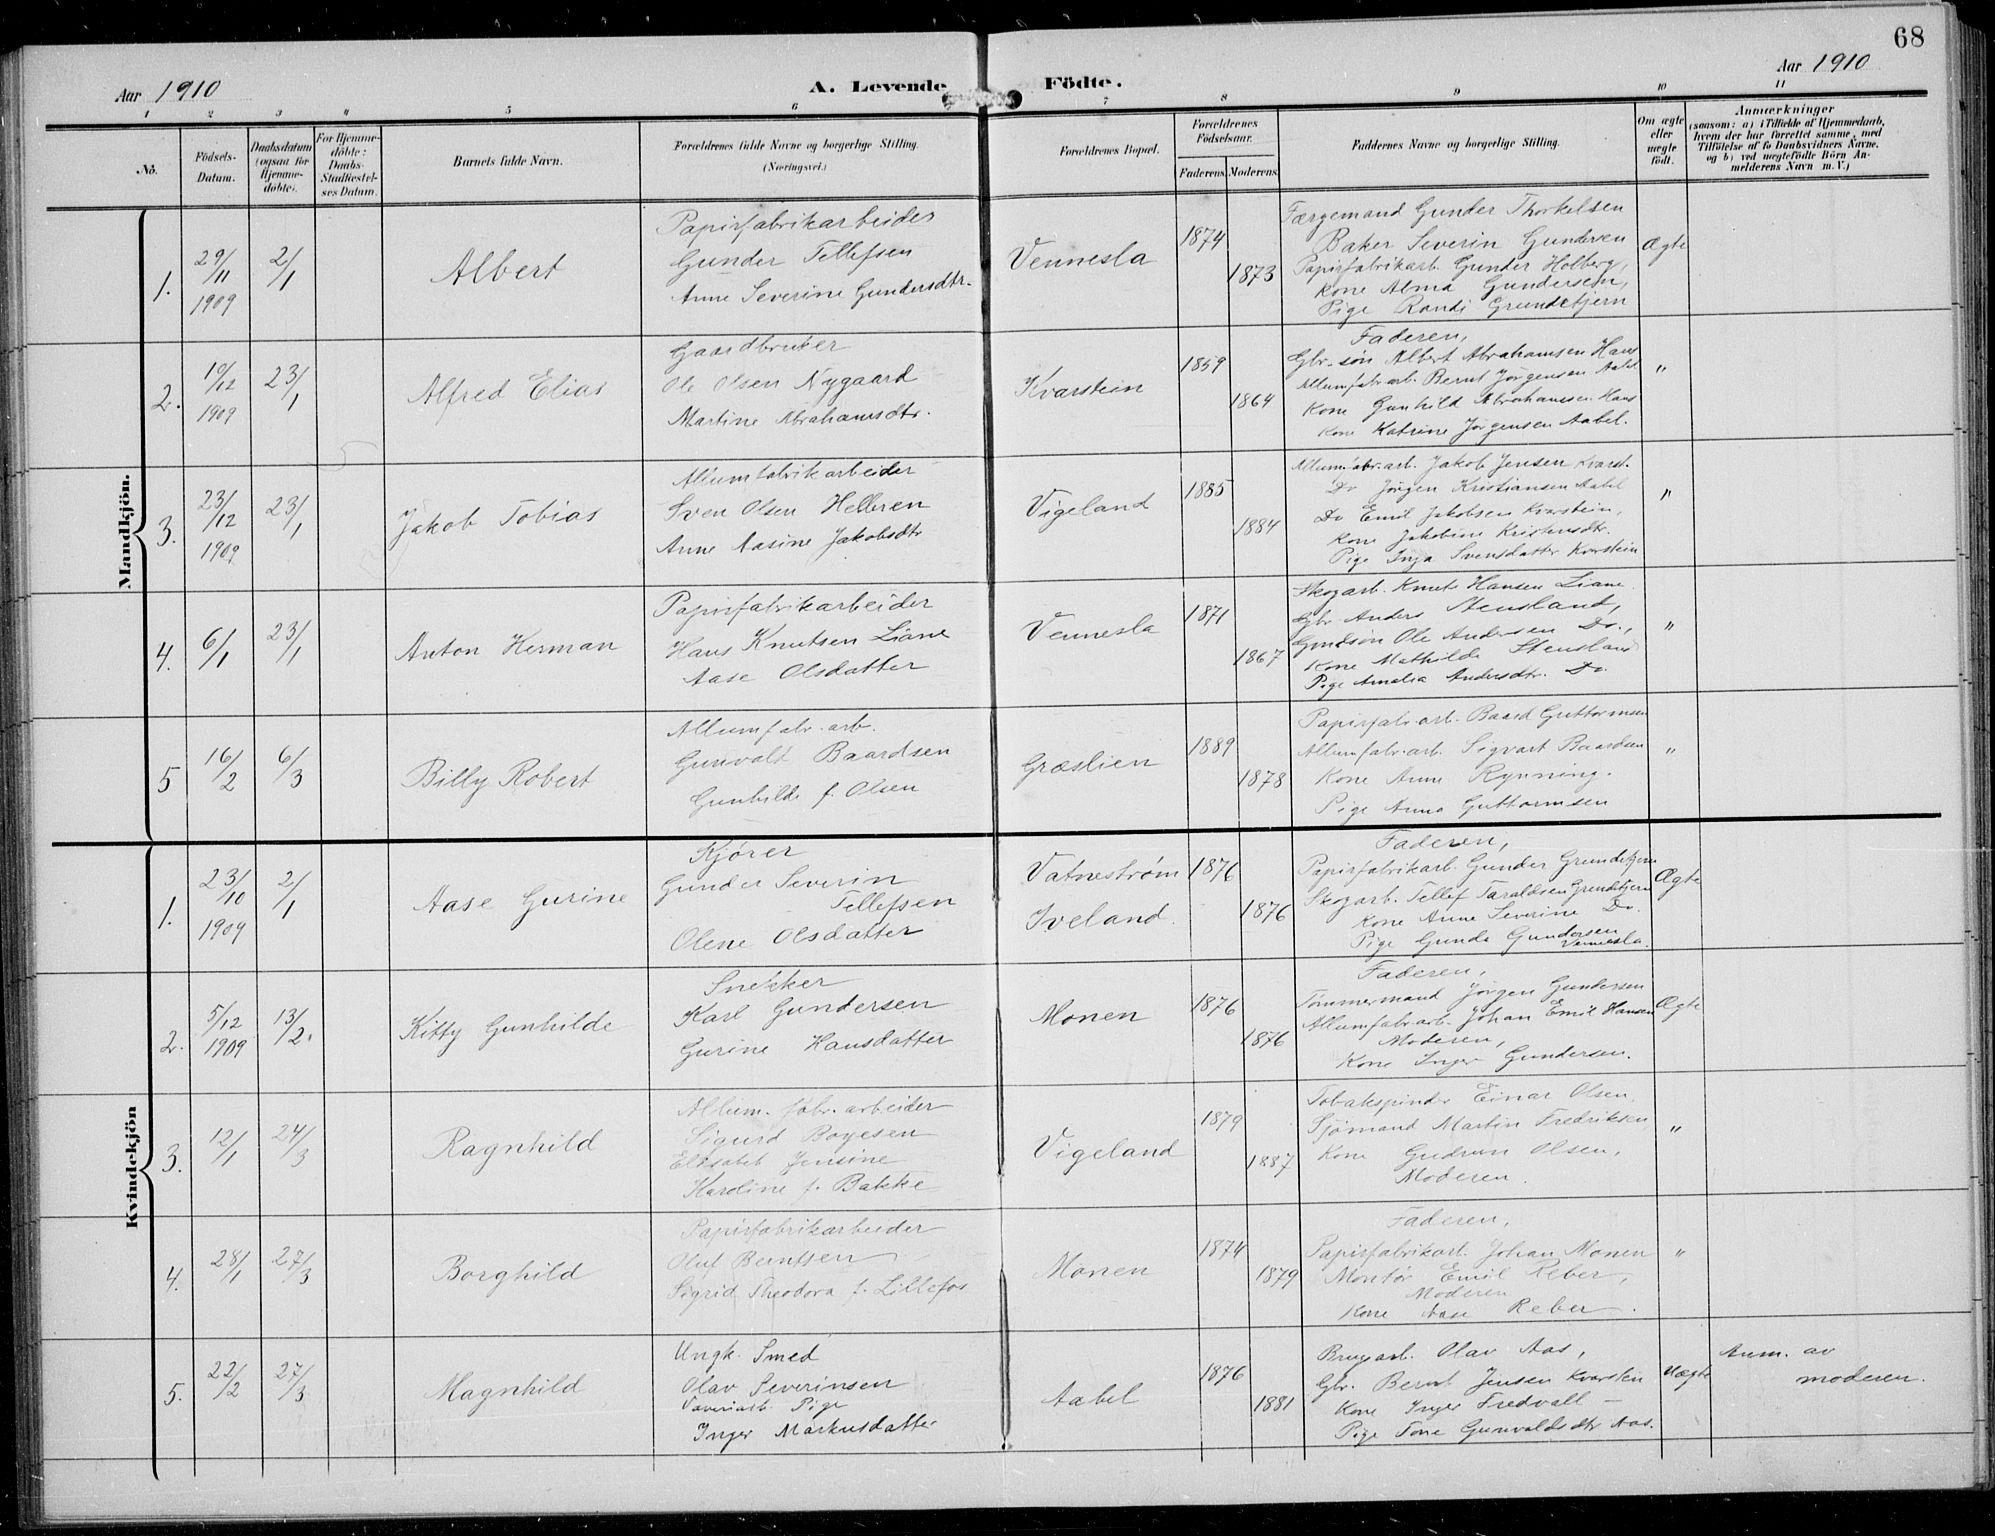 68
Aar 1910
A. Levende Födte.
Aar 1910
1 2 3 4 5 6 7 8 9 10 11
No.
Födsels-
Datum.
Daabsdatum
(ogsaa for
Hjemme-
döbte).
For Hjemme-
döbte:
Daabs-
Stadfæstel-
ses Datum.
Barnets fulde Navn.
Forældrenes fulde Navne og borgerlige Stilling.
(Næringsvei.)
Forældrenes Bopæl.
Forældrenes
Födselsaar.
Faderens. Moderens.
Faddernes Navne og borgerlige Stilling.
Om ægte
eller
uægte
födt.
Anmærkninger
(saasom: a) i Tilfælde af Hjemmedaab,
hvem der har forrettet samme, med
Tilföielse af to Daabsvidners Navne,
og b) ved uægtefödte Börn An-
melderens Navn m. V.)
Mandkjön.
1.
29/11
1909
2/1
Albert
Papirfabrikarbeider
Gunder Tellefsen
Anne Severine Gundersdtr.
Vennesla
1874
1873
Færgemand Gunder Thorkelsen
Baker Severin Gundersen
Papirfabrikarb. Gunder Holberg,
Kone Alma Gundersen,
Pige Randi Grundetjern
Ægte
2.
19/12
1909
23/1
Alfred Elias
Gaardbruker
Ole Olsen Nygaard
Martine Abrahamsdtr.
Kvarstein
1859
1864
Faderen,
Gbr. søn Albert Abrahamsen Haus
Allumfabr. arb. Bernt Jørgensen Aabel
Kone Gunhild Abrahamsen Haus
Kone Katrine Jørgensen Aabel.
"
3.
23/12
1909
23/1
Jakob Tobias
Allumfabrikarbeider
Sven Olsen Helleren
Anne Aasine Jakobsdtr
Vigeland
1885
1884
Allumfabr. arb. Jakob Jensen Kvarst.
Do Jörgen Kristiansen Aabel
Do Emil Jakobsen Kvarstein,
Kone Jakobine Kristensdtr.
Pige Inga Svensdatter Kvarstein
"
4.
6/1
23/1
Anton Herman
Papirfabrikarbeider
Hans Knutsen Liane
Aase Olsdatter
Vennesla
1871
1867
Skogarb. Knut Hansen Liane
Gbr Anders Stensland,
Gmdsøn Ole Andersen Do.,
Kone Mathilde Stensland
Pige Amalia Andersdtr. Do.
"
5
16/2
6/3
Billy Robert
Allumfabr. arb.
Gunvald Baardsen
Gunhilde f. Olsen
Græslien
1889
1878
Papirfabr. arb. Baard Guttormsen
Allumfabr. arb. Sigvart Baardsen
Kone Anne Rynning.
Pige Anna Guttormsen
"
Kvindekjön
1.
23/10
1909
2/1
Aase Gurine
Kjører
Gunder Severin
Tellefsen
Olene Olsdatter
Vatneström
Iveland.
1876
1876
Faderen,
Papirfabrikarb. Gunder Grundetjern
Skogarb. Tellef Taraldsen Grundetjern
Kone Anne Severine Do.
Pige Gunda Gundersen
Vennesla.
Ægte
2.
5/12
1909
13/2.
Kitty Gunhilde
Snekker
Karl Gundersen
Gurine Hansdatter
Monen
1876
1876
Faderen,
Tømmermand Jörgen Gundersen
Allumfabr. arb. Johan Emil Hansen
Moderen,
Kone Inger Gundersen.
Ægte
3.
12/1
24/3
Ragnhild
Allum. fabr. arbeider
Sigurd Boyesen
Elisabet Jensine
Karoline f. Bakke
Vigeland
1879
1887
Tobakspinder Einar Olsen
Sjömand Martin Fredriksen
Kone Gudrun Olsen,
Moderen.
"
4.
28/1
27/3
Borghild
Papirfabrikarbeider
Oluf Berntsen
Sigrid Theodora f. Lillefos
Monen
1874
1879
Faderen,
Papirfabrikarb. Johan Monen
Montör Emil Reber,
Moderen
Kone Aase Reber.
"
5.
22/2
27/3
Magnhild
Ungk. Smed
Olav Severinsen
Pige
Inger Markusdatter
Aabel
1876
1881
Brugsarb. Olav Aas,
Gbr. Bernt Jensen Kvarstein
Kone Inger Fredvall
Pige Tone Gunvaldsdtr Aas.
Uægte
Anm. av
moderen.